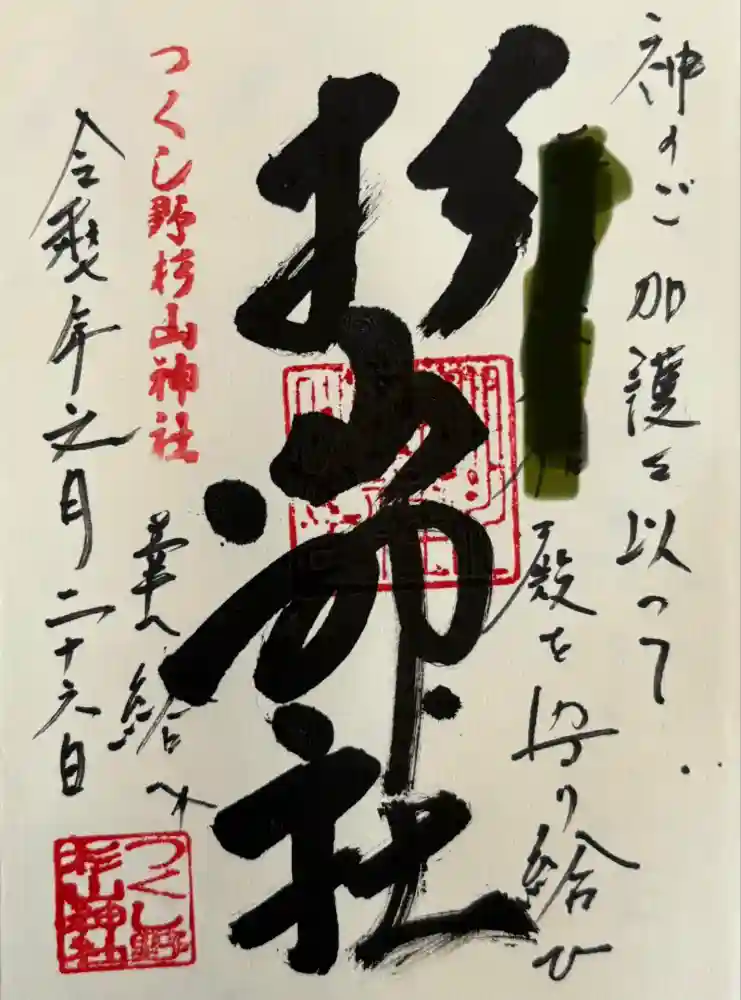 神のご加護を以って
殿を守り給ひ
杉山神社
幸へ給へ
つくし野杉山神社
令和七年月二十六日
つくし野
杉山神社